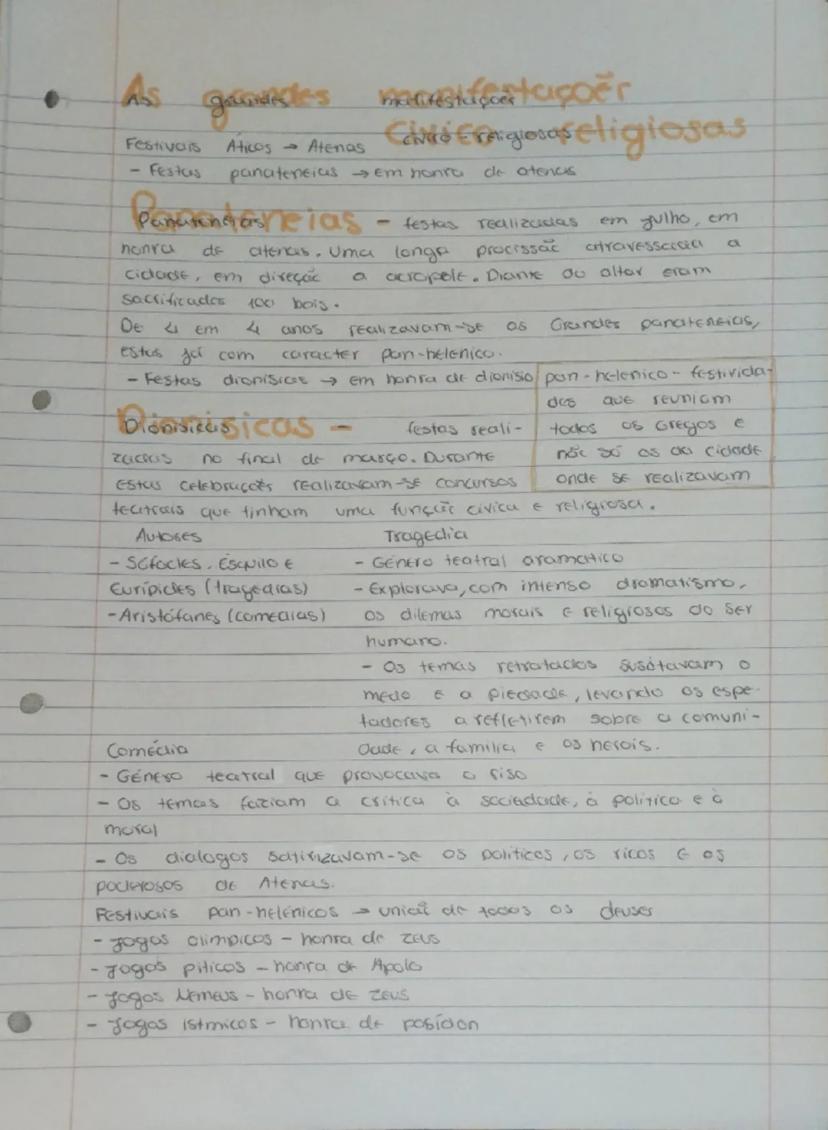 As grandes manifestações
Civico-religiosas
Festivais Áticos → Atenas
- Festas panateneias → em honra de atenas
Panateneias - festas realizadas em julho, em
honra de atenas. Uma longa procissão atravessava a
cidade, em direção a acropole. Diante do altar eram
sacrificados 100 bois.
De 4 em 4 anos realizavam-se as Grandes panateneias,
estas já com caracter pan-helenico.
- Festas dionisicas → em honra de dioniso
pan-helenico - festivida-
des que reuniam
todos os Gregos e
não só os da cidade
onde se realizavam
Dionisicas - festas reali-
zadas no final de março. Durante
estas celebrações realizavam-se concursos
teatrais que tinham uma função civica e religiosa.
Autores
- Sófocles, Ésquilo e
Eurípides (tragedias)
- Aristófanes (comedias)
Tragedia
- Género teatral dramatico
- Explorava, com intenso dramatismo,
os dilemas morais e religiosos do ser
humano.
- Os temas retratados susotavam o
medo e a piedade, levando os espe-
tadores a refletirem sobre a comuni-
dade, a familia e os herois.
Comédia
- Género teatral que provocava o riso
- Os temas faziam a crítica à sociedade, à política e à
moral
- Os dialogos satirizavam-se os politicos, os ricos e os
poderosos de Atenas.
Festivais pan-helénicos → união de todos os deuses
- Jogos olimpicos - honra de Zeus
- Jogos piticos - honra de Apolo
- Jogos Nemeus - honra de Zeus
- Jogos istmicos - honra de posídon